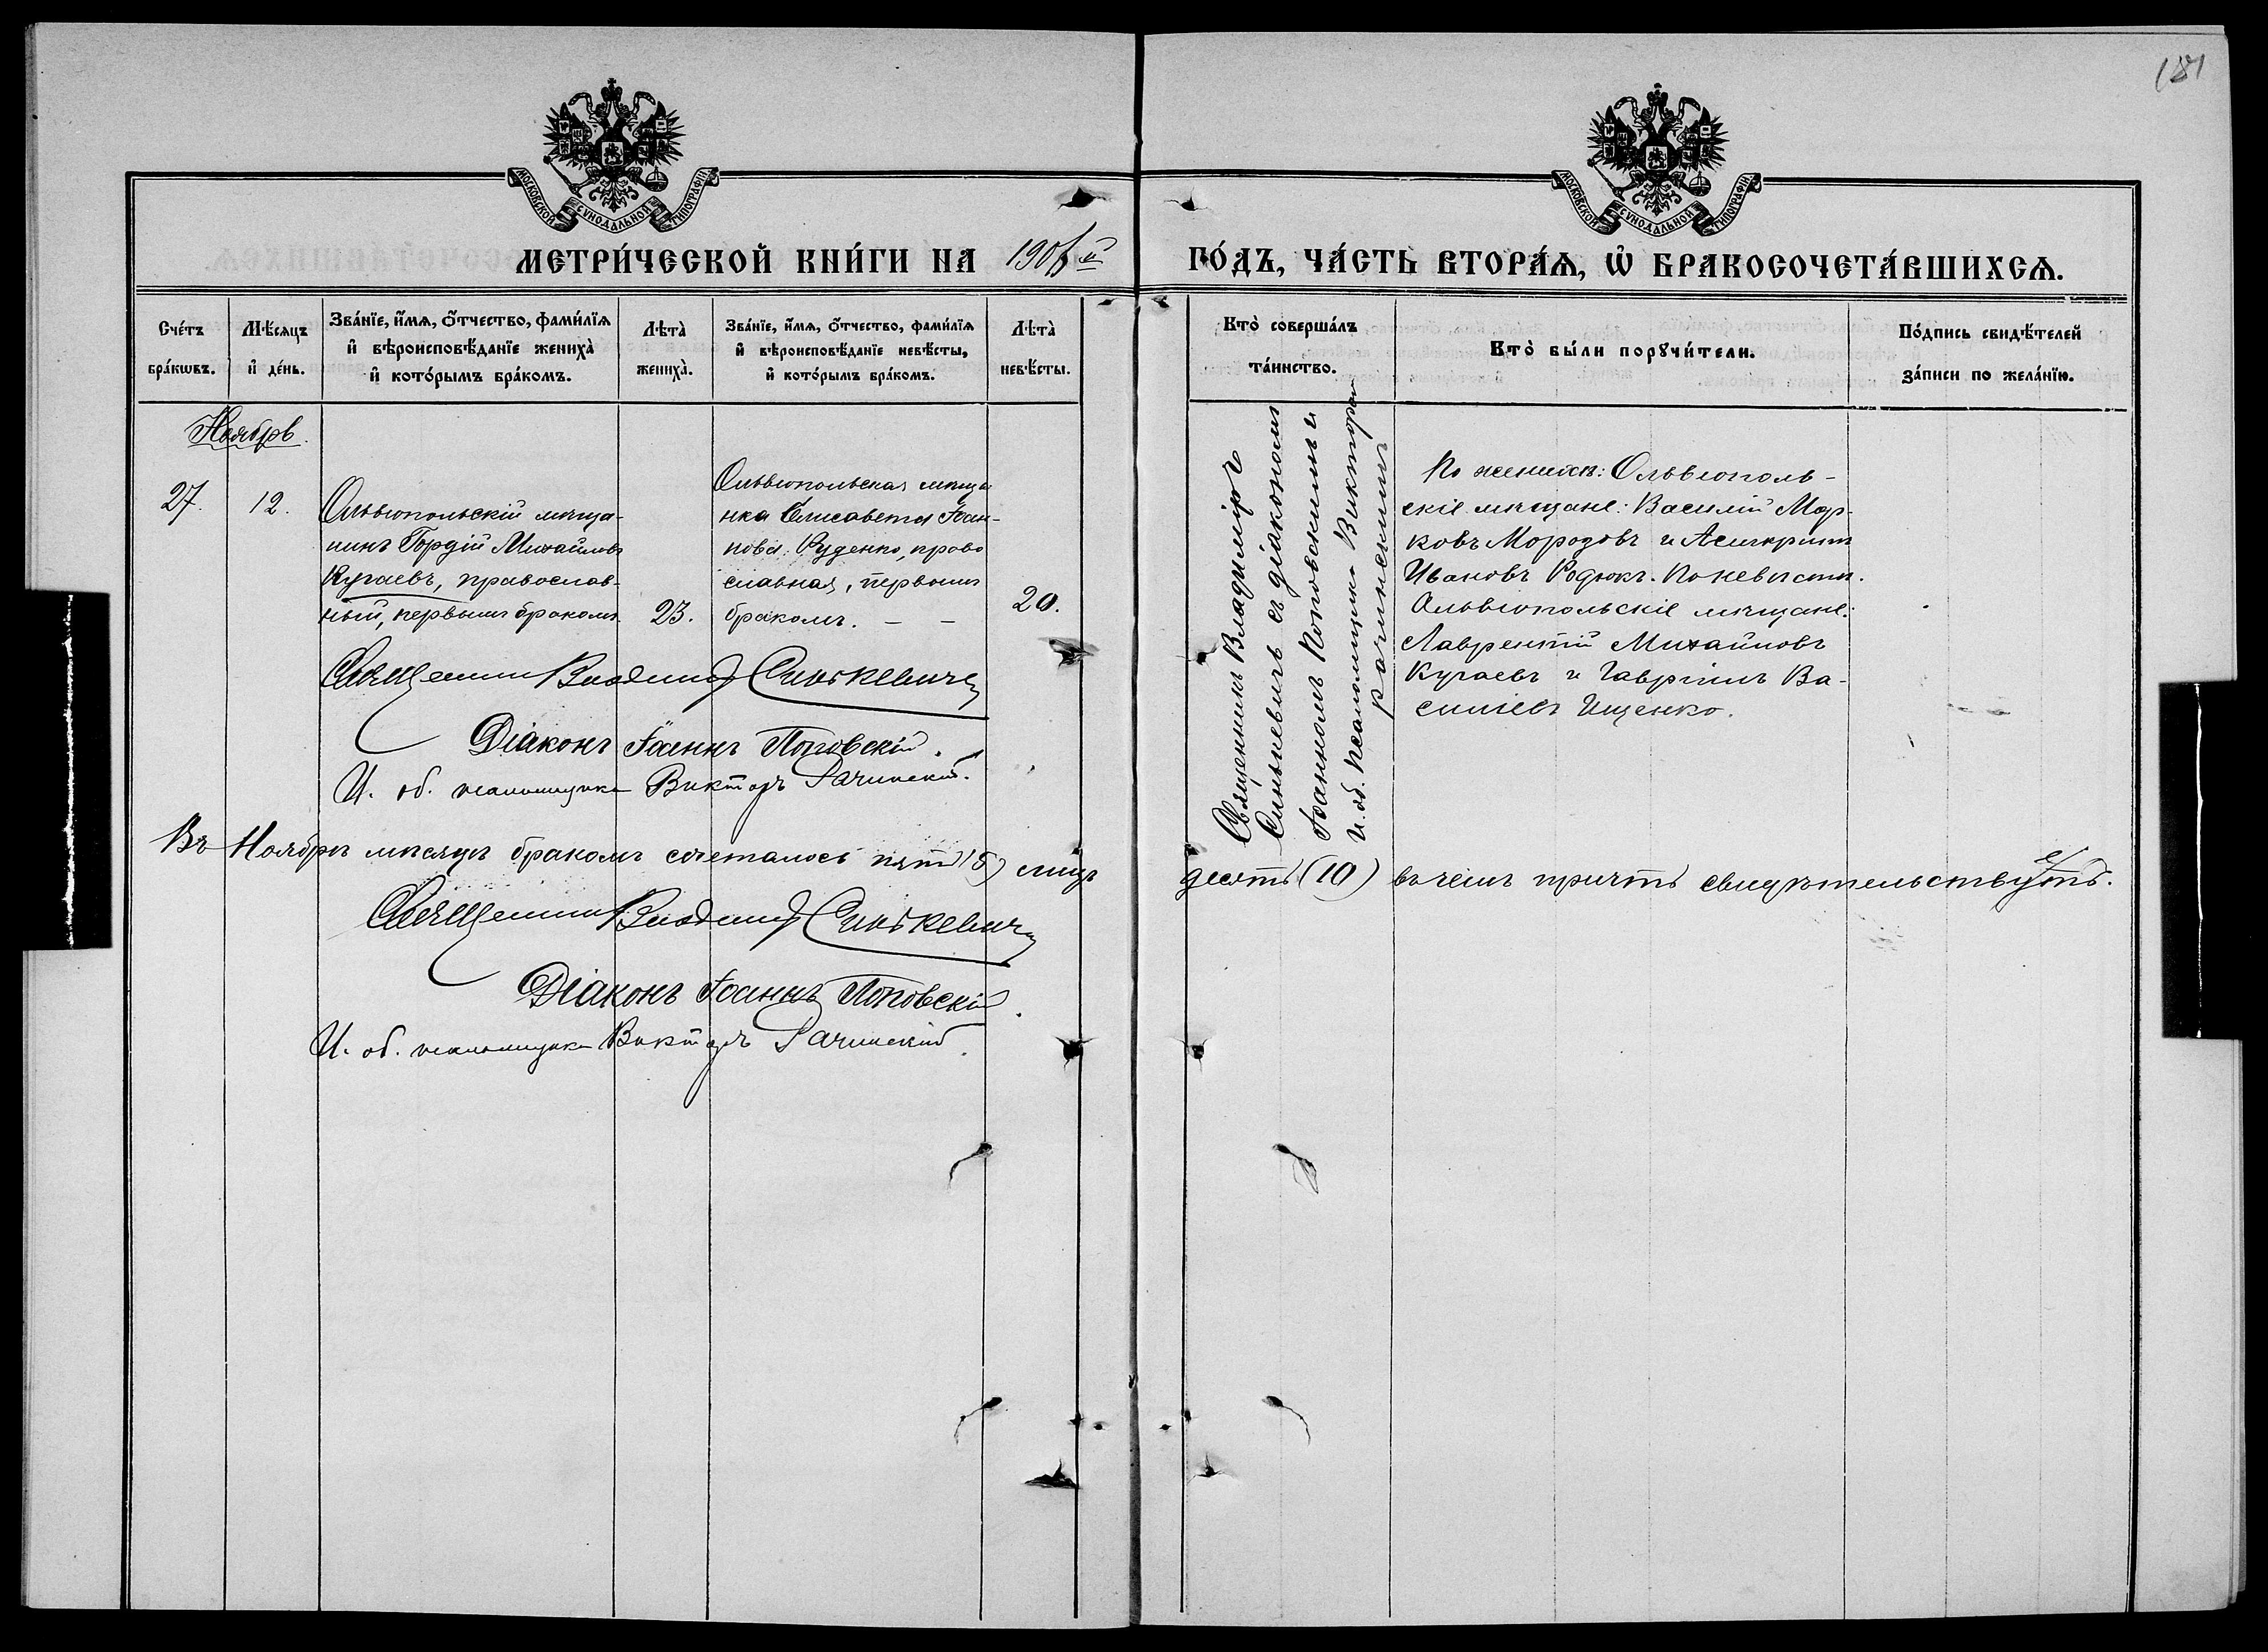 181
МОСКОВСКОЙ СУНОДАЛЬНОЙ ТИПОГРАФІИ
МОСКОВСКОЙ СУНОДАЛЬНОЙ ТИПОГРАФІИ
МЕТРИ́ЧЕСКОЙ КНИ́ГИ НА
ГО́ДЪ, ЧА́СТЬ ВТОРА́Ѧ, Ѡ҆ БРАКОСОЧЕТА́ВШИХСѦ.
Сче́тъ
бра́кωвъ.
Мѣ́сяцъ
и҆ де́нь.
Зва́нїе, и҆́мѧ, ѻ҆́тчество, фами́лїѧ
и҆ вѣроисповѣ́данїе жениха̀
и҆ кото́рымъ бра́комъ.
Лѣта̀
жениха̀.
Зва́нїе, и҆́мѧ, ѻ҆́тчество, фами́лїѧ
и҆ вѣроисповѣ́данїе невѣ́сты,
и҆ кото́рымъ бра́комъ.
Лѣта̀
невѣ́сты.
Кто̀ соверша́лъ
та́инство.
Кто̀ бы́ли порꙋчи́тели.
По́дпись свидѣ́телей
за́писи по жела́нїю.
Ноябрь.
27.
12.
Ольвіопольскій мѣща-
нинъ Гордій Михайловъ
Кугаевъ, православ-
ный, первымъ бракомъ.
23.
Ольвіопольская мѣща
нка Елисавета Іоан-
нова Руденко, право
славная, первымъ
бракомъ. — —
20.
Священникъ Владиміръ
Синькевичъ съ діакономъ
Іоанномъ Поповскимъ и
и. об. псаломщика Викторомъ
Рачинскимъ
По женихѣ: Ольвіополь-
скіе мѣщане: Василій Мар-
ковъ Морозовъ и Асинкритъ
Ивановъ Родюкъ. По невѣстѣ.
Ольвіопольскіе мѣщане:
Лаврентій Михайловъ
Кугаевъ и Гавріилъ Ва-
силіевъ Ищенко.
Священникъ Владиміръ Синькевичъ
Діаконъ Іоаннъ Поповскій.
И. об. псаломщика Викторъ Рачинскій.
Въ Ноябрѣ мѣсяцѣ бракомъ сочеталось пять (5) лицъ десять (10) въ чемъ причтъ свидѣтельствуетъ.
Священникъ Владиміръ Синькевичъ
Діаконъ Іоаннъ Поповскій.
И. об. псаломщика Викторъ Рачинскій.